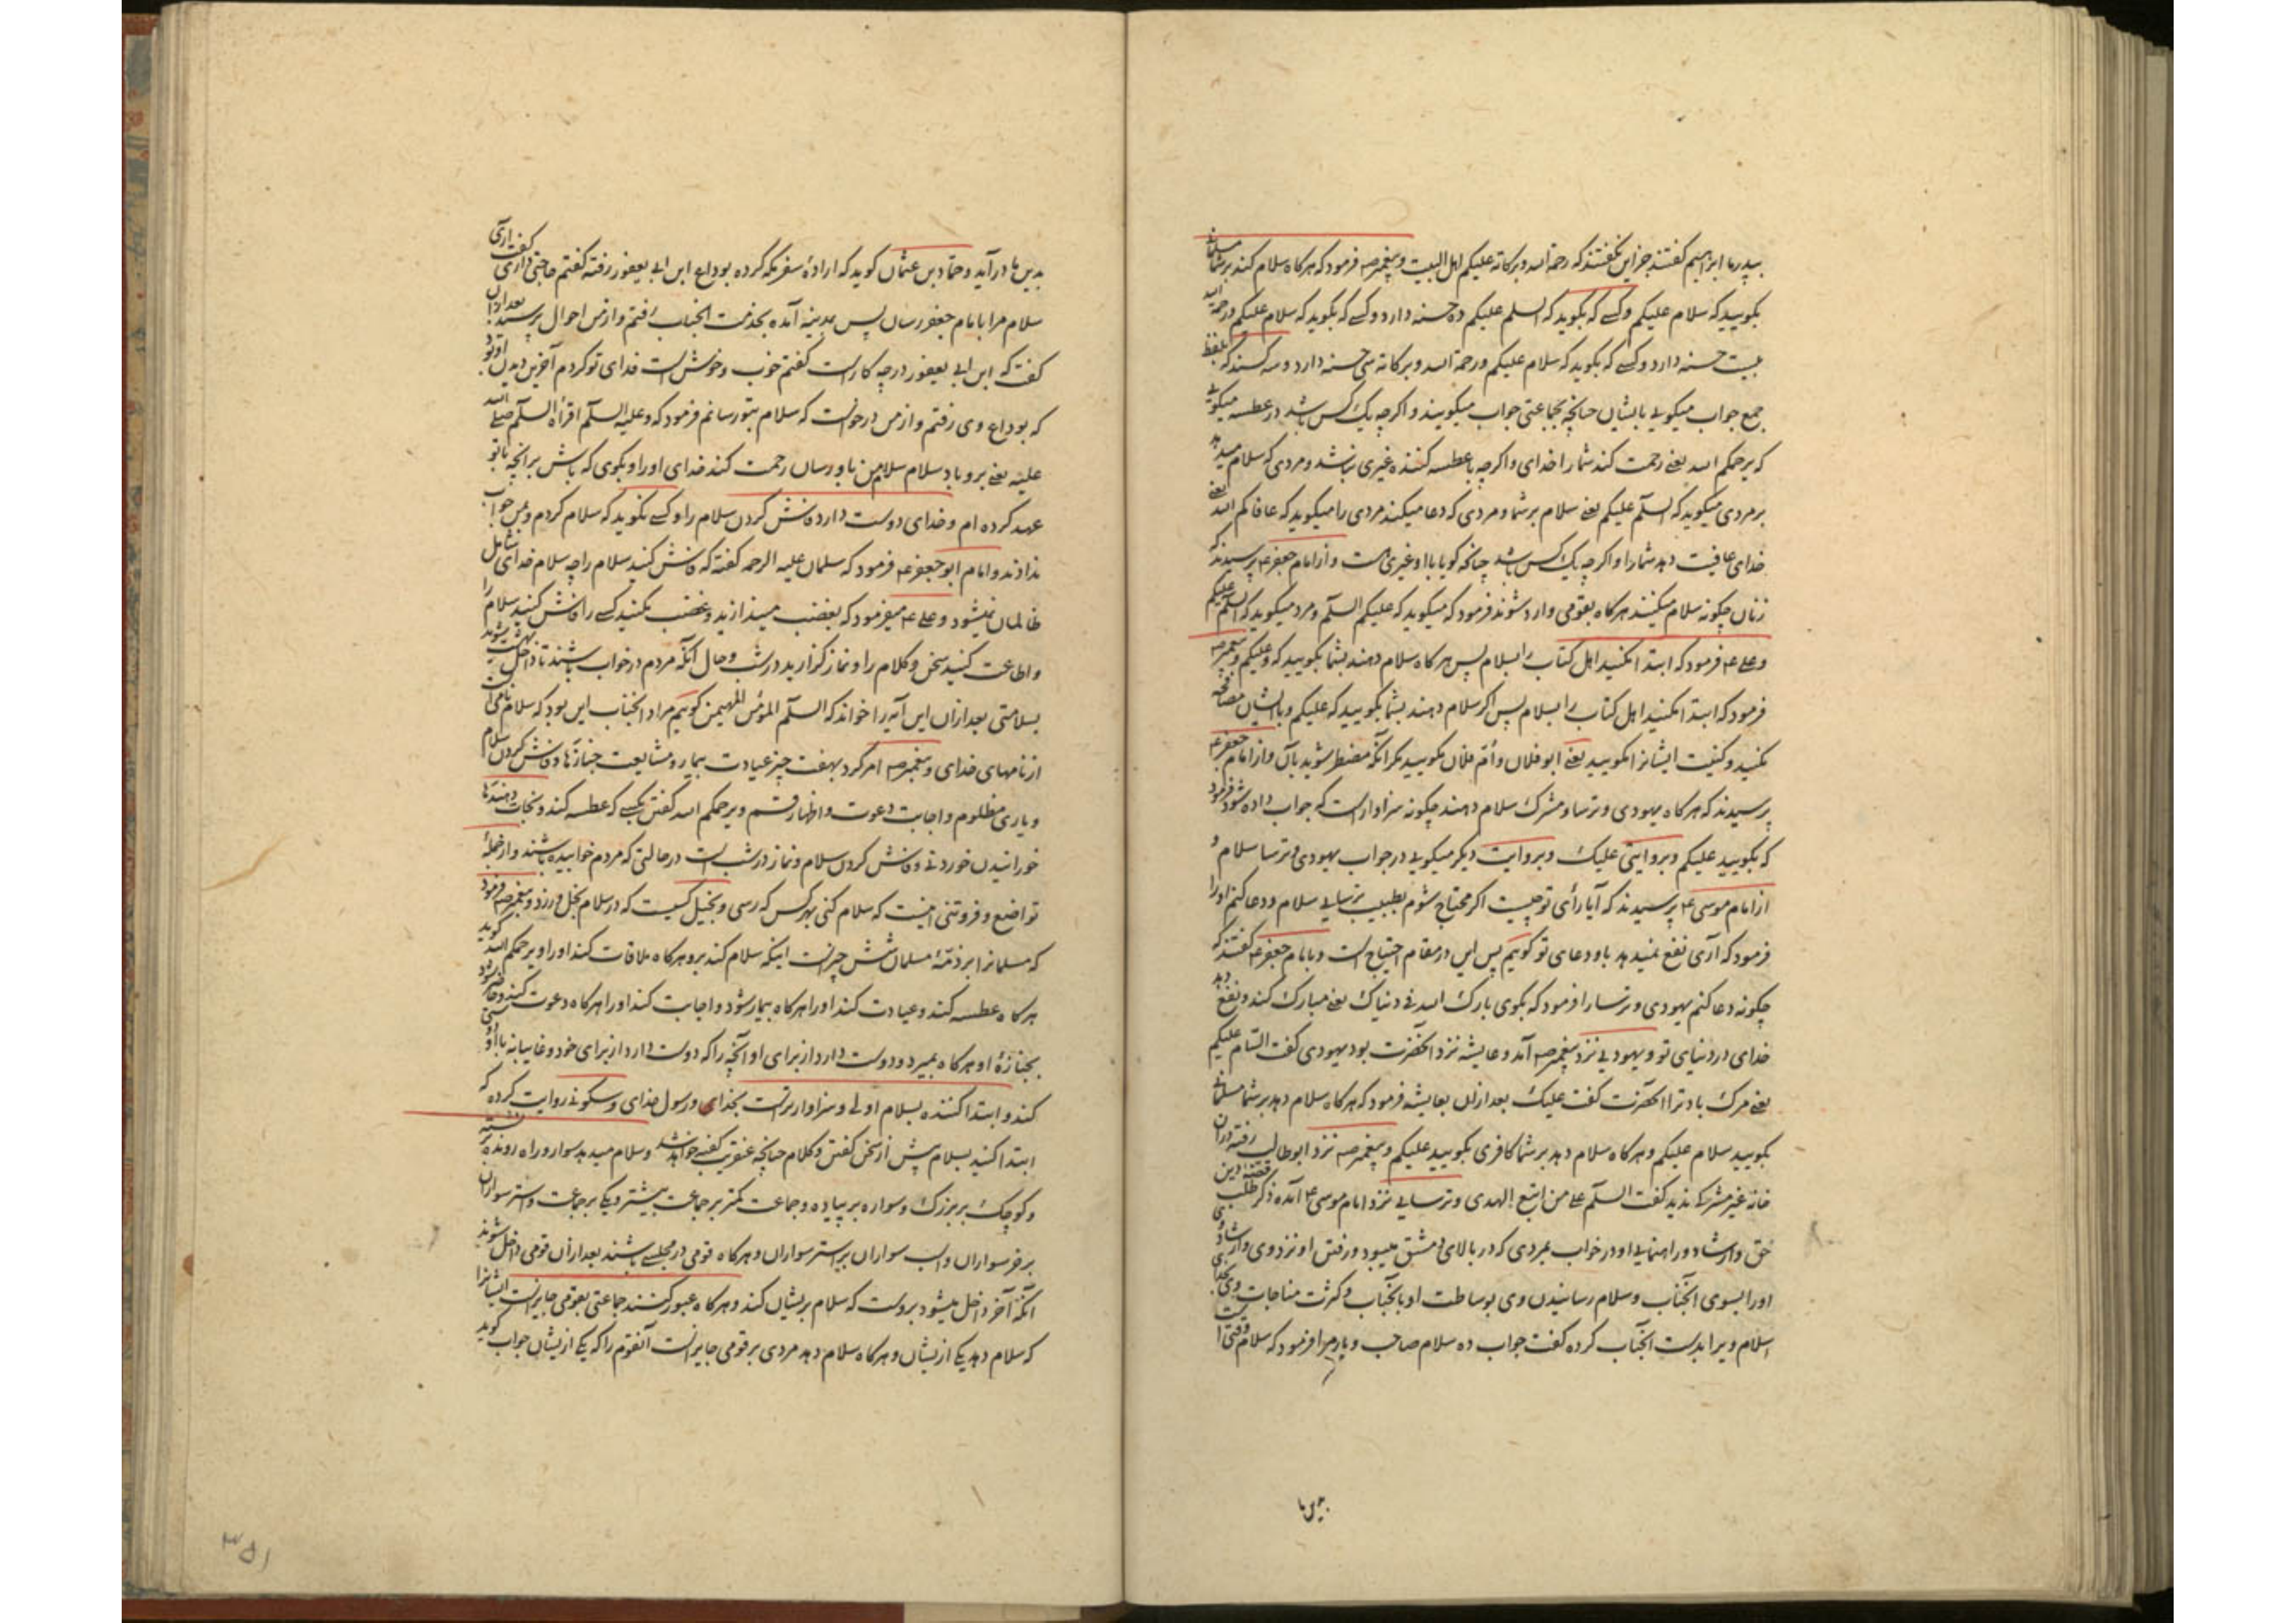 بپدر ما ابراهیم گفتند جز این نگفتند که رحمة الله وبرکاته علیکم اهل البیت و پیغمبر ص فرمود که هرکاه سلام کند بر شما مسلمانی
بکویید که سلام علیکم و کسے که بکوید که السلم علیکم ده حسنه دارد و کسے که بکوید که سلام علیکم ورحمة الله
بیست حسنه دارد و کسے که بکوید که سلام علیکم ورحمة الله وبرکاته سی حسنه دارد و سه کسند که بلفظ
جمع جواب میکویی بایشان چنانچه بجماعتی جواب میکویند و اکرچه یک کس باشد در عطسه میکویی
که یرحمکم الله یعنے رحمت کند شما را خدای و اکرچه با عطسه کننده غیری نباشد و مردی که سلام میدهد
بر مردی میکوید که السلم علیکم یعنے سلام بر شما و مردی که دعا میکند مردی را میکوید که عافاکم الله یعنے
خدای عافیت دهد شما را و اکرچه یک کس باشد چنانکه کویا با او غیری هست و از امام جعفر ع پرسیدند که
زنان چکونه سلام میکنند هرکاه بقومی وارد شوند فرمود که میکوید که علیکم السلم و مرد میکوید که السلم علیکم
و علے ع فرمود که ابتدا مکنید اهل کتاب را بسلام پس هرکاه سلام دهند بشما بکویید که وعلیکم و پیغمبر ص
فرمود که ابتدا مکنید اهل کتاب را بسلام پس اکر سلام دهند بشما بکویید که علیکم و با ایشان مصافحه
مکنید و کنیت ایشانرا مکویید یعنے ابو فلان و اُمّ فلان مکویید مکر آنکه مضطر شوید بآن و از امام جعفر ع
پرسیدند که هرکاه یهودی و ترسا و مشرک سلام دهند چکونه سزاوار است که جواب داده شود فرمود
که بکویید علیکم و بروایتی علیک و بروایت دیکر میکویی در جواب یهودی و ترسا سلام و
از امام موسی ع پرسیدند که آیا رأی تو چیست اکر محتاج شوم بطبیب ترسایی سلام و دعا کنم او را
فرمود که آری نفع نمیدهد باو دعای تو کوییم پس این در مقام احتیاج است و بامام جعفر ع گفتند که
چکونه دعا کنم یهودی و ترسا را فرمود که بکوی بارک الله فی دنیاک یعنے مبارک کند و نفع دهد
خدای در دنیای تو و یهودیی نزد پیغمبر ص آمد و عایشه نزد آنحضرت بود یهودی گفت السّام علیکم
یعنے مرک باد ترا آنحضرت گفت علیک بعد ازان بعایشه فرمود که هرکاه سلام دهد بر شما مسلمانی
بکویید سلام علیکم و هرکاه سلام دهد بر شما کافری بکویید علیکم و پیغمبر ص نزد ابوطالب رفته دران
خانه غیر مشرکے ندید گفت السلم علے من اتبع الهدی و ترسایی نزد امام موسی ع آمده ذکر طلب دین
حق و ارشاد و راهنمایی او در خواب بمردی که در بالای دمشق میبود و رفتن او نزد وی و ارشاد وی
او را بسوی آنجناب و سلام رسانیدن وی بوساطت او بآنجناب و کثرت مناجات وی
اسلام ویرا بدست آنجناب کرده گفت جواب ده سلام صاحب و یار مرا فرمود که سلام
بدین ما
بدین ما درآید و حمّاد بن عثمان کوید که اراده سفر مکه کرده بوداع ابن ابی یعفور رفته گفتم حاجتی داری گفت آری
سلام مرا بامام جعفر رسان پس بمدینه آمده بخدمت آنجناب رفتم و از من احوال پرسید بعد ازان
گفت که ابن ابی یعفور در چه کار است گفتم خوب و خوش است فدای تو کردم آخرین دیدن او بود
که بوداع وی رفتم و از من درخواست که سلام بتو رسانم فرمود که وعلیه السلم اقرأه السلم صلی الله
علیه یعنے برو باد سلام سلام من باو رسان رحمت کند خدای او را و بکوی که باش بر آنچه با تو
عهد کرده ام و خدای دوست دارد فاش کردن سلام را و کسے نکوید که سلام کردم و بمن جواب
ندادند و امام ابو جعفر ع فرمود که سلمان علیه الرحمه گفته که فاش کنید سلام را چه سلام خدای شامل
ظالمان نمیشود و علے ع میفرمود که بغضب میندازید و غضب مکنید کسے را فاش کنید سلام را
و اطاعت کنید سخن و کلام را و نماز کزارید در شب و حال آنکه مردم در خواب باشند تا داخل بهشت شوید
بسلامتی بعد ازان این آیه را خواند که السلم المؤمن المهیمن کوییم مراد آنجناب این بود که سلام نامی است
از نامهای خدای و پیغمبر ص امر کرد بهفت چیز عیادت بیمار و مشایعت جنازها و فاش کردن سلام
و یاری مظلوم و اجابت دعوت و اظهار قسم و یرحمکم الله گفتن بکسے که عطسه کند و نجات دهندها
خورانیدن خوردنی و فاش کردن سلام و نماز در شب است در حالتی که مردم خوابیده باشند و از جملۀ
تواضع و فروتنی اینست که سلام کنی بهر کس که رسی و بخیل کسیست که در سلام بخل ورزد و پیغمبر ص فرمود
که مسلمانرا بر ذمّۀ مسلمان شش چیز است اینکه سلام کند برو هرکاه ملاقات کند او را و یرحمکم الله کوید
هرکاه عطسه کند و عیادت کند او را هرکاه بیمار شود و اجابت کند او را هرکاه دعوت کند و حاضر شود
بجنازۀ او هرکاه بمیرد و دوست دارد از برای او آنچه را که دوست دارد از برای خود و غایبانه با او دوستی
کند و ابتدا کننده بسلام اولی و سزاوارتر است بخدای و رسول خدای و سکونی روایت کرده که
ابتدا کنید بسلام پیش از سخن گفتن و کلام چنانچه عنقریب گفته خواهد شد و سلام میدهد سوار و راه رونده بر نشسته
و کوچک بر بزرک و سواره بر پیاده و جماعت کمتر بر جماعت بیشتر و یکی بر جماعت و استر سواران
بر خر سواران و اسب سواران بر استر سواران و هرکاه قومی در مجلسے باشند بعد ازان قومی داخل شوند
آنکه آخر داخل میشود بروست که سلام بریشان کند و هرکاه عبور کنند جماعتی بقومی جایز است ایشانرا
که سلام دهد یکی ازیشان و هرکاه سلام دهد مردی بر قومی جایز است آنقوم را که یکی ازیشان جواب کوید
۱۵۳